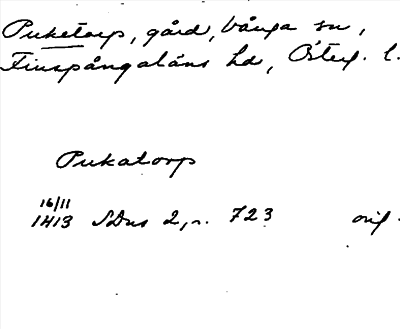 Puketorp, gård, Vånga sn,
Finspångaläns hd, Österg. l.
Pukatorp
16/11
1413 SDns 2, s. 723 orig.